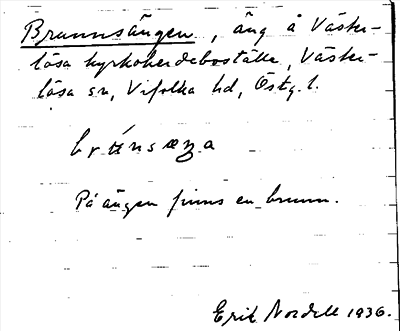 Brunnsängen, äng å Väster-
lösa kyrkoherdeboställe, Väster-
lösa sn, Vifolka hd, Östg. l.
På ängen finns en brunn.
Erik Nordell 1936.